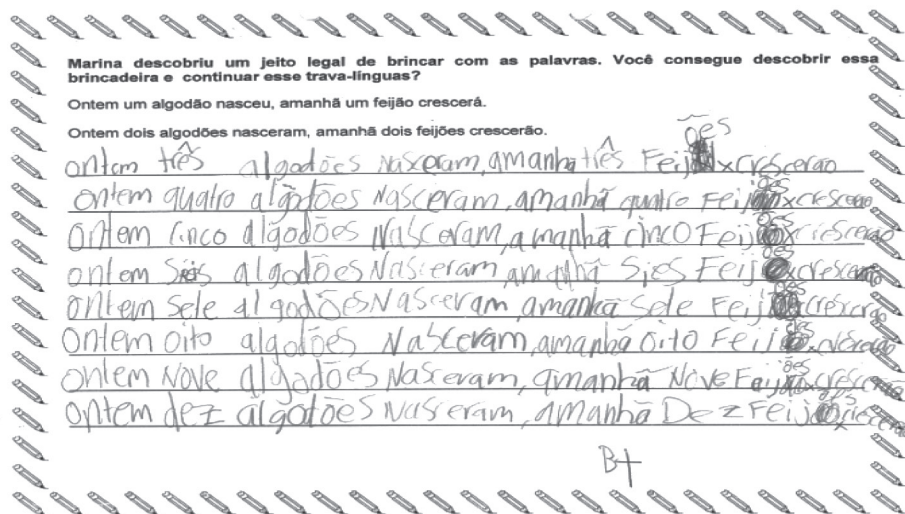 Marina descobriu um jeito legal de brincar com as palavras. Você consegue descobrir essa
brincadeira e continuar esse trava-línguas?
Ontem um algodão nasceu, amanhã um feijão crescerá.
Ontem dois algodões nasceram, amanhã dois feijões crescerão.
ões
ontem três algodões Nasceram, amanhã três Feij x crescerão
ões
ontem quatro algodões Nasceram, amanhã quatro Feij x crescerão
ões
ontem cinco algodões Nasceram, amanhã cinco Feij x crescerão
ões
ontem Sies algodões Nasceram, amanhã Sies Feij x crescerão
ões
ontem Sete algodões Nasceram, amanhã Sete Feij crescerão
ões
ontem oito algodões Nasceram, amanhã Oito Feij x crescerão
ões
ontem Nove algodões Nasceram, amanhã Nove Feij x crescerão
ões
ontem dez algodões Nasceram, amanhã Dez Feij x crescerão
B+